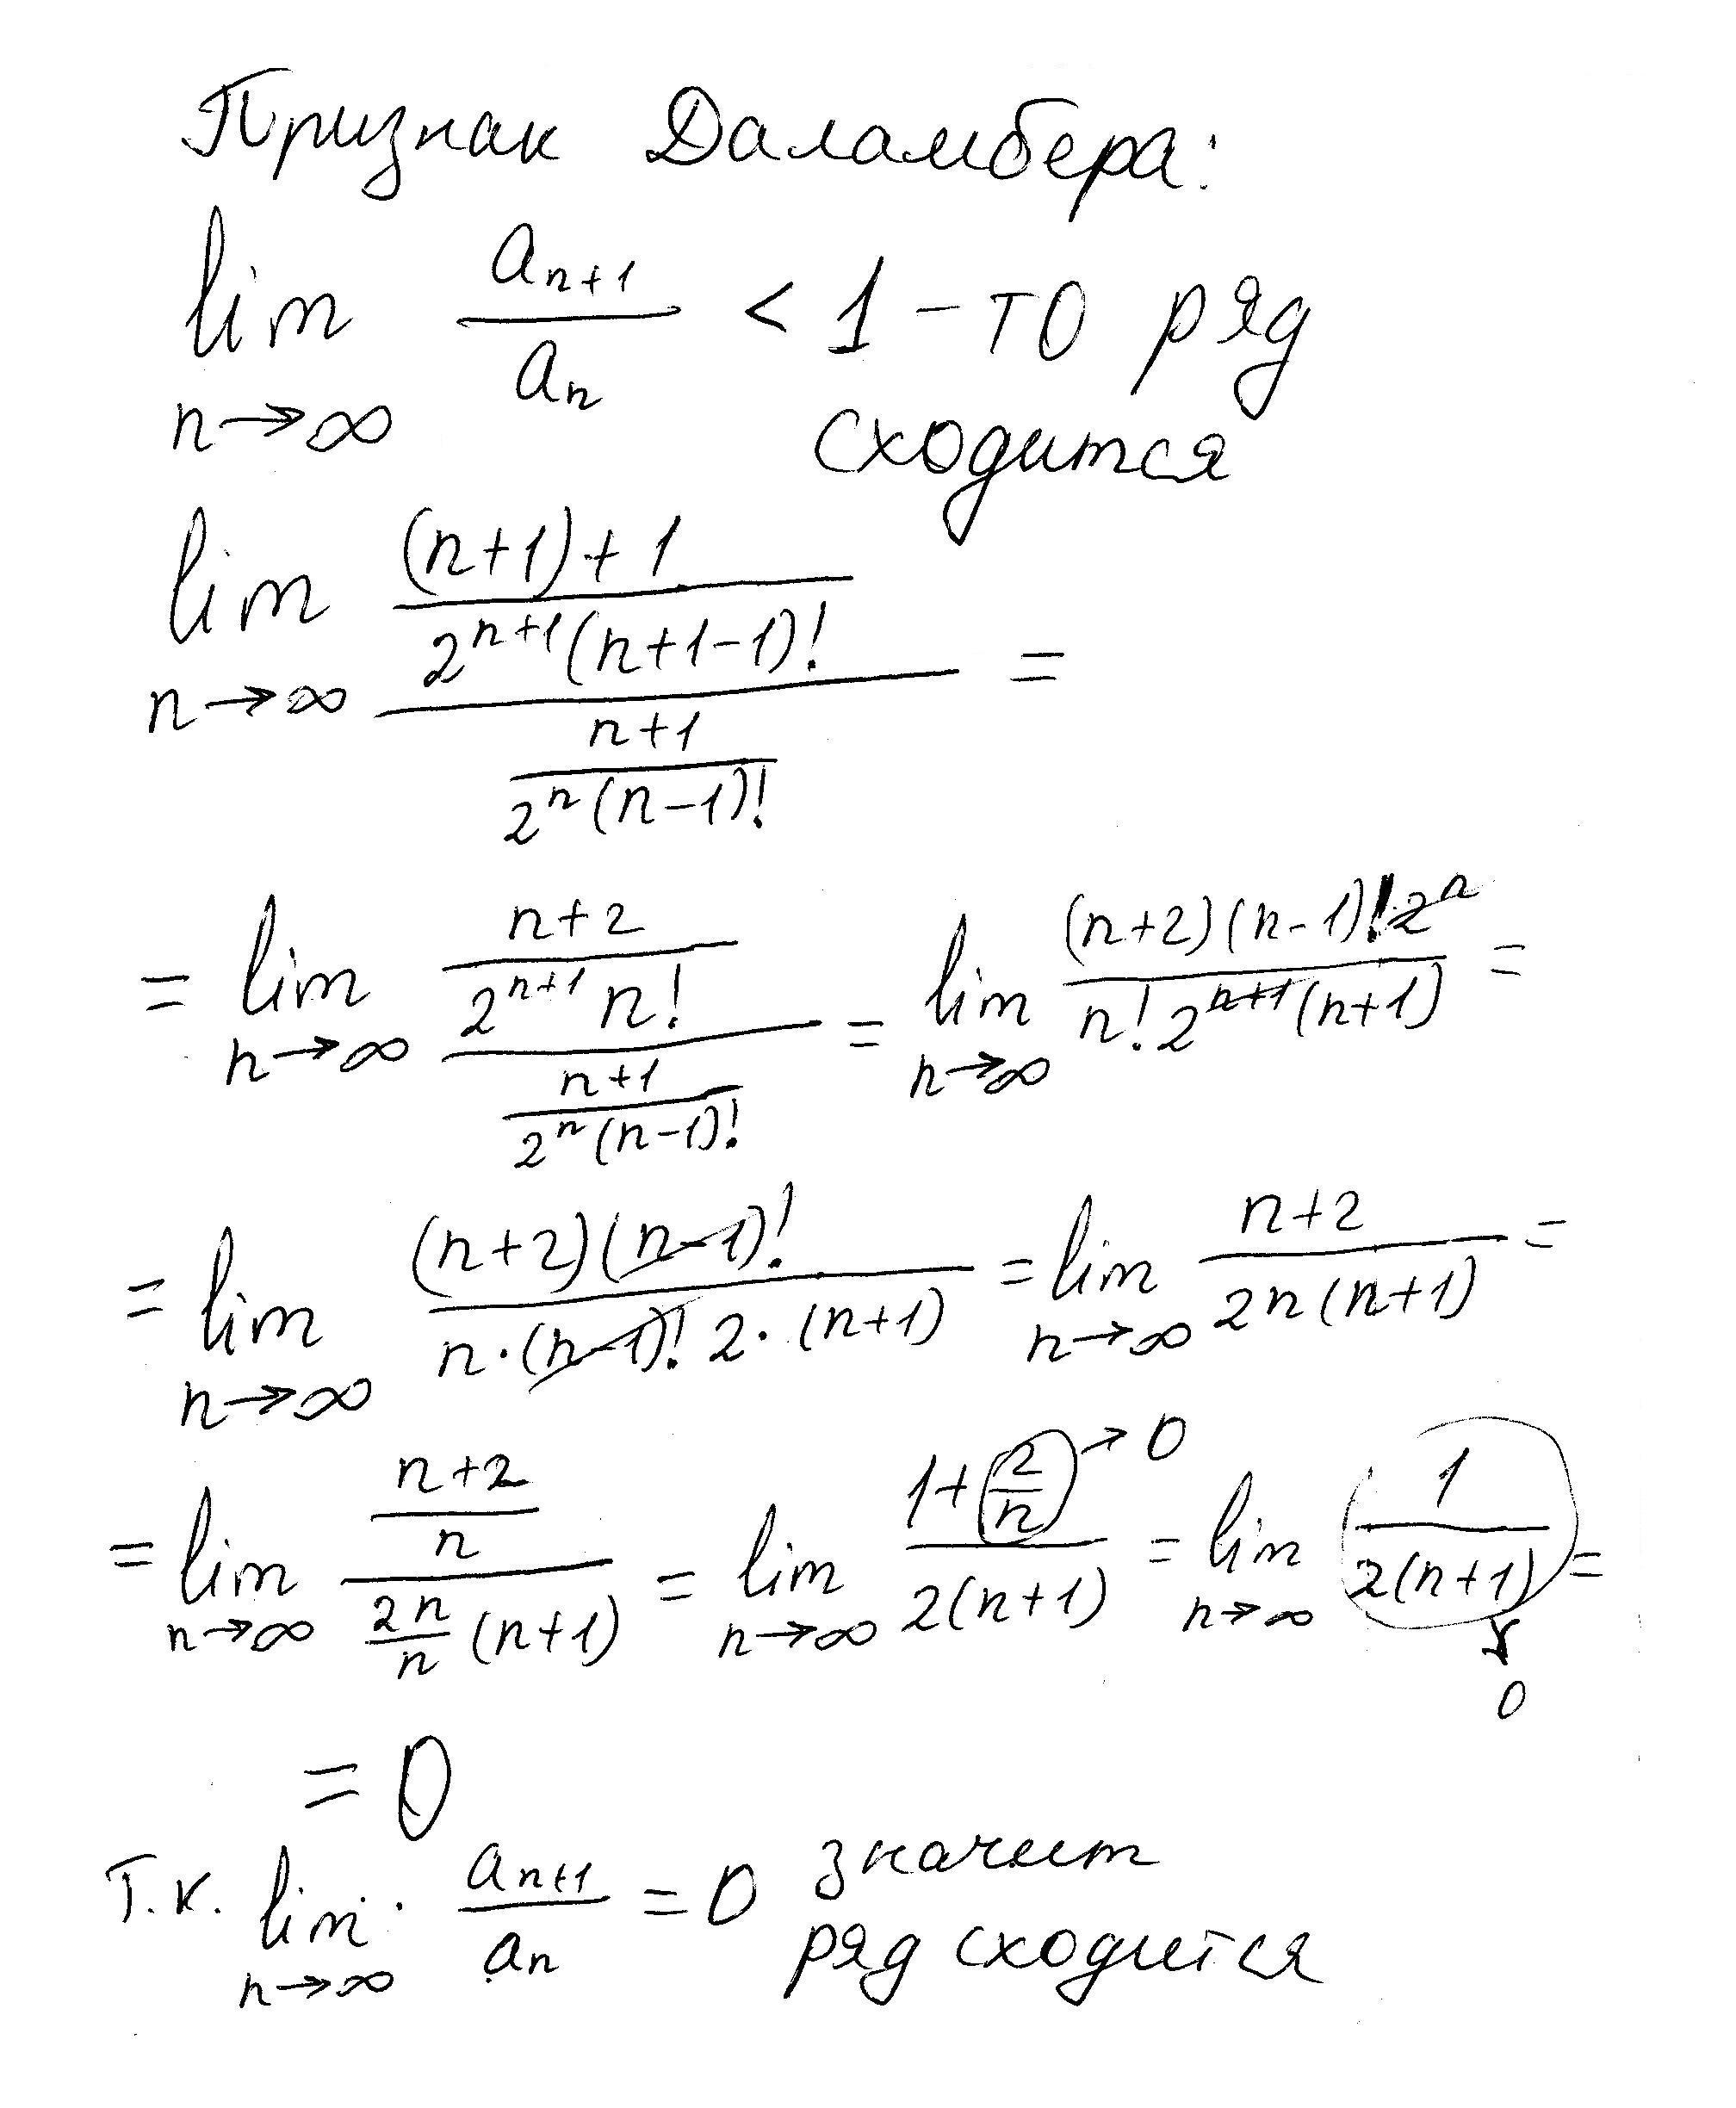 Признак Даламбера:
lim n→∞ a_{n+1} / a_n < 1 - то ряд
сходится
lim n→∞ ((n+1)+1 / 2^{n+1}(n+1-1)!) / (n+1 / 2^n(n-1)!) =
= lim n→∞ (n+2 / 2^{n+1} n!) / (n+1 / 2^n(n-1)!) = lim n→∞ (n+2)(n-1)! 2^n / n! 2^{n+1}(n+1) =
= lim n→∞ (n+2)(n-1)! / n·(n-1)! 2·(n+1) = lim n→∞ n+2 / 2n(n+1) =
= lim n→∞ (n+2 / n) / (2n / n (n+1)) = lim n→∞ 1+(2/n) → 0 / 2(n+1) = lim n→∞ 1 / 2(n+1) =
↓
0
= 0
Т.к. lim n→∞ a_{n+1} / a_n = 0 значит
ряд сходится